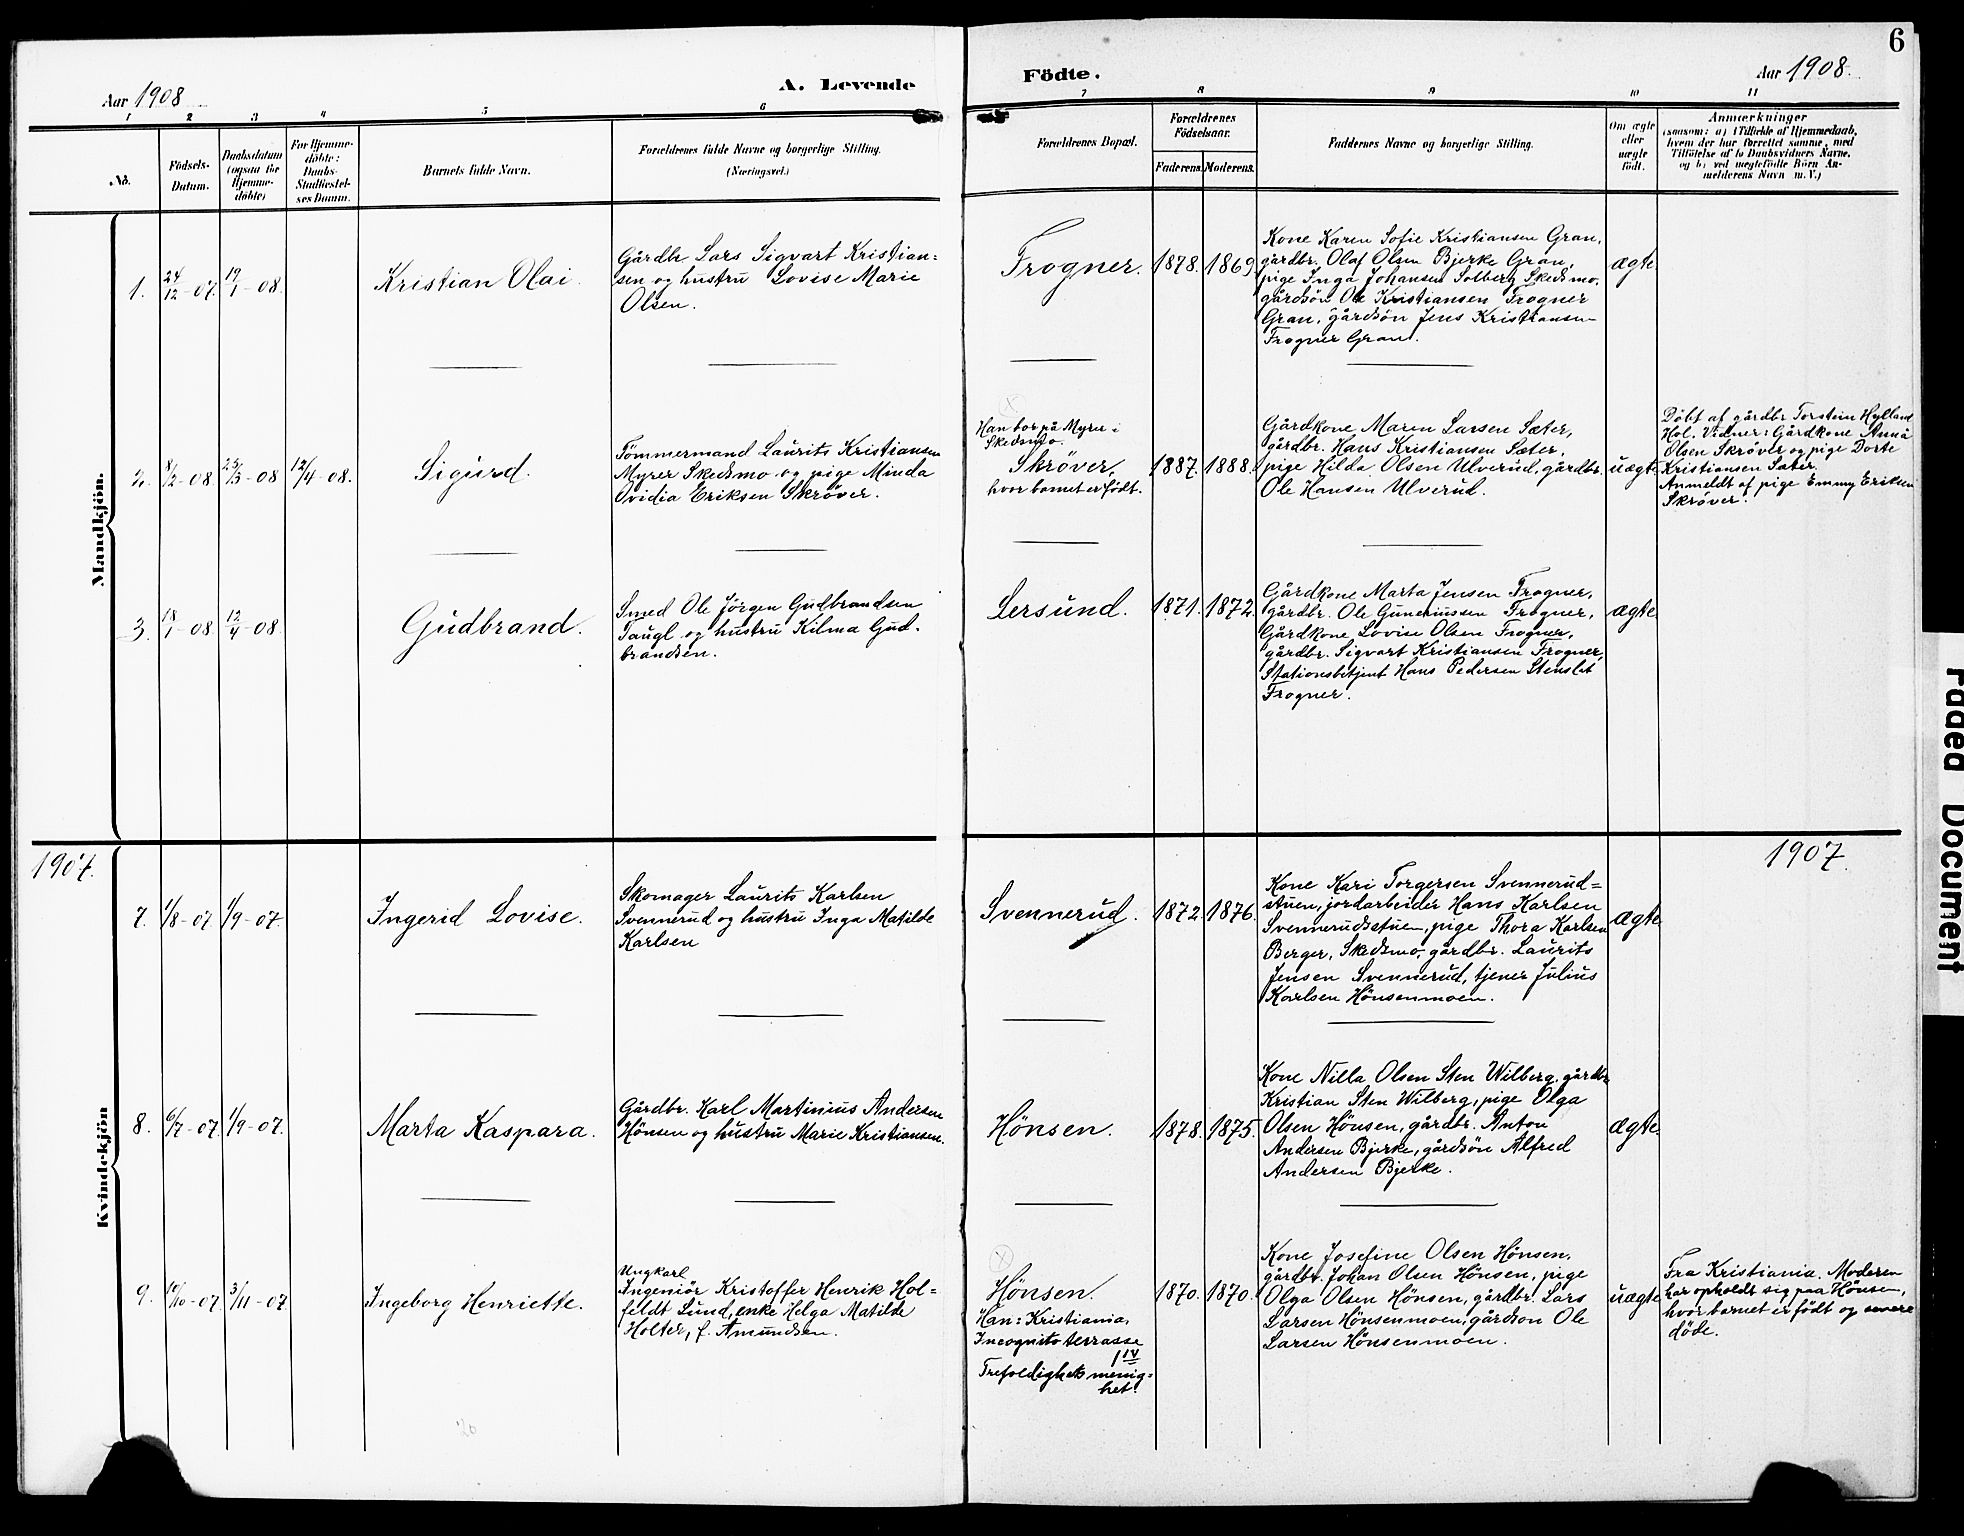 6
Aar 1908
A. Levende
Födte.
Aar 1908.
1
2
3
4
5
6
7
8
9
10
11
No.
Födsels-
Datum.
Daabsdatum
(ogsaa for
Hjemme-
døbte)
For Hjemme-
døbte:
Daabs-
Stadfæstel-
ses Datum.
Barnets fulde Navn.
Forældrenes fulde Navne og borgerlige Stilling.
(Næringsvei.)
Forældrenes Bopæl.
Forældrenes
Födselsaar.
Faderens.
Moderens.
Faddernes Navne og borgerlige Stilling.
Om ægte
eller
uægte
født.
Anmærkninger
(saasom: a) i Tilfælde af Hjemmedaab,
hvem der har forrettet samme, med
Tilföielse af to Daabsvidners Navne,
og b) ved uægtefödte Börn An-
melderens Navn m. V.)
Mandkjön.
1.
24/12-07.
19/1-08.
Kristian Olai.
Gårdbr Lars Sigvart Kristian=
sen og hustru Lovise Marie
Olsen.
Frogner.
1878.
1869
Kone Karen Sofie Kristiansen Gran,
gårdbr. Olaf Olsen Bjerke Gran,
pige Inga Johansen Solberg Skedsmo,
gårdsön Ole Kristiansen Frogner
Gran, gårdsön Jens Kristiansen
Frogner Gran.
ægte.
2.
8/2-08.
25/3-08
12/4-08.
Sigurd.
Tömmermand Laurits Kristiansen
Myrer Skedsmo og pige Minda
Ovidia Eriksen Skröver.
Han bor på Myrer i
Skedsmo.
Skröver,
hvor barnet er födt.
1887.
1888.
Gårdkone Maren Larsen Sæter,
gårdbr. Hans Kristiansen Sæter,
pige Hilda Olsen Ulverud, gårdbr.
Ole Hansen Ulverud.
uægte
Döbt af gårdbr Torstein Hylland
Hol. Vidner: Gårdkone Anna
Olsen Skröver og pige Dorte
Kristiansen Sæter.
Anmeldt af pige Emmy Eriksen
Skröver.
3.
18/1-08.
12/4-08.
Gudbrand.
Smed Ole Jörgen Gudbrandsen
Taugl og hustru Kilma Gud-
brandsen.
Lersund.
1871.
1872.
Gårdkone Marta Jensen Frogner,
gårdbr. Ole Guneriussen Frogner,
Gårdkone Lovise Olsen Frogner,
gårdbr. Sigvart Kristiansen Frogner,
Stationsbetjent Hans Pedersen Stenslet
Frogner.
ægte.
1907.
1907.
Kvindekjön
7.
1/8-07.
1/9-07.
Ingerid Lovise.
Skomager Laurits Karlsen
Svennerud og hustru Inga Matilde
Karlsen
Svennerud.
1872.
1876.
Kone Kari Torgersen Svennerud=
stuen, jordarbeider Hans Karlsen
Svennerudstuen, pige Thora Karlsen
Berger, Skedsmo, gårdbr. Laurits
Jensen Svennerud, tjener Julius
Karlsen Hönsenmoen.
ægte
8.
6/7-07.
1/9-07.
Marta Kaspara.
Gårdbr. Karl Martinius Andersen
Hönsen og hustru Marie Kristiansen.
Hönsen.
1878.
1875.
Kone Nilla Olsen Sten Wilberg, gårdbr
Kristian Sten Wilberg, pige Olga
Olsen Hönsen, gårdbr. Anton
Andersen Bjerke, gårdsön Alfred
Andersen Bjerke.
ægte.
9.
10-07.
3/11-07
Ingeborg Henriette.
Ungkarl
Ingeniör Kristoffer Henrik Hol=
feldt Lund, enke Helga Matilde
Holter, f. Amundsen.
Hönsen.
Han: Kristiania,
Incognitoterrasse
1 IV
Trefoldigheds menig=
het.
1870.
1870.
Kone Josefine Olsen Hönsen,
gårdbr. Johan Olsen Hönsen, pige
Olga Olsen Hönsen, gårdbr. Lars
Larsen Hönsenmoen, gårdson Ole
Larsen Hönsenmoen.
uægte
Fra Kristiania. Moderen
har opholdt sig paa Hönsen,
hvor barnet er födt og senere
döde.
Faded Document